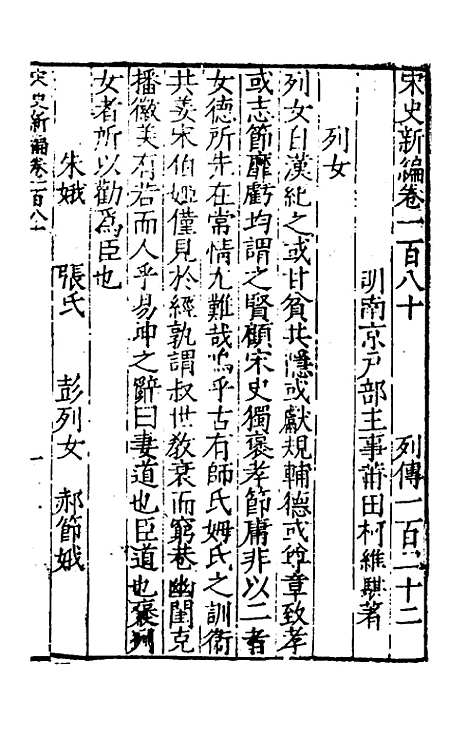 宋史新編卷一百八十 列傳一百二十二
明南京戶部主事莆田柯維騏著
列女
列女自漢紀之或甘貧共隱或獻規輔德或彰章致孝
或志節靡虧均謂之賢顧宋史獨褒孝節庸非以二者
女德所先在常情尤難哉嗚乎古有師氏姆氏之訓衛
共姜宋伯姬僅見於經孰謂叔世教衰而窮巷幽閨克
播徽美有若而人乎易坤之辭曰妻道也臣道也褒列
女者所以勸爲臣也
朱娥 張氏 彭列女 郝節娥
宋史新編卷一百八十 一